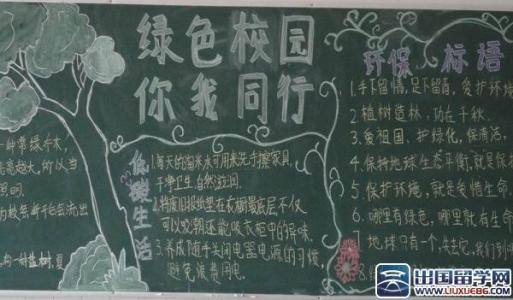 绿色校园
你我同行
一种常绿乔木，
低碳生活
1.每天的淘米水可用来洗手擦家具，
干净卫生，自然滋润。
2.将废旧报纸垫在衣橱最底层，不仅
可以吸潮，还能吸衣柜中的异味。
3.养成随手关闭电器电源的习惯，
避免浪费用电。
环保 标语
1.手下留情，足下留青，爱护环境
2.植树造林，功在千秋。
3.爱祖国、护绿化、保清洁，
4.保持地球生态平衡，就是保
5.保护环境，就是珍惜生命。
6.哪里有绿色，哪里就有生命
7.地球只有一个，
8.
出国留学网
WWW.LIUXUE86.COM